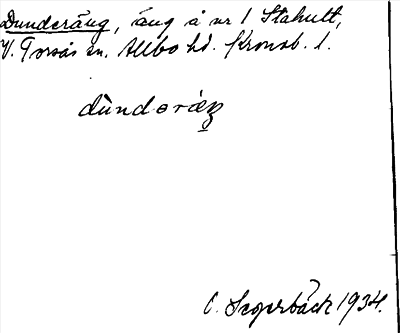 Dunderäng, äng å nr 1 Ståhult,
V. Torsås sn. Allbo hd. Kronob. l.
dùndəràŋ
C. Segerbäck 1934.